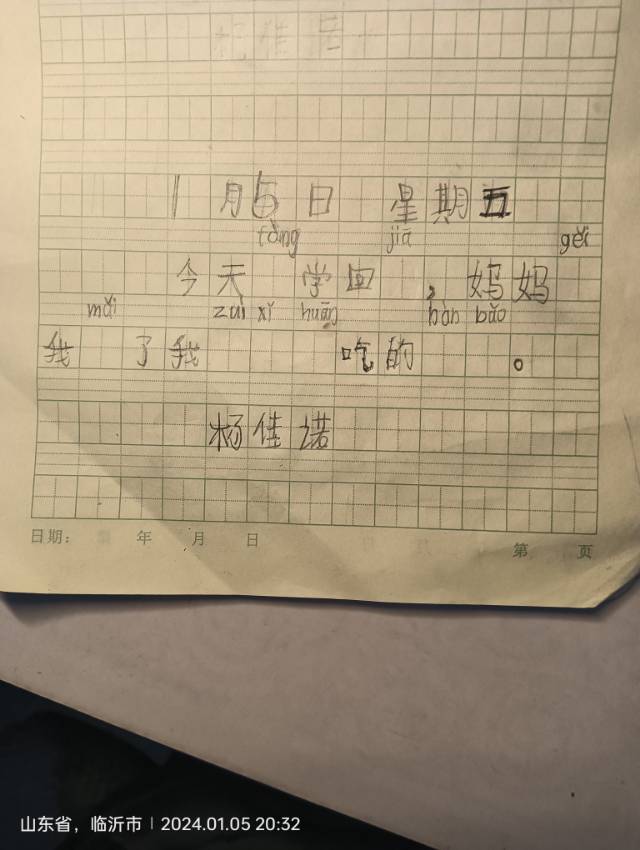 1月5日 星期五
fàng jiā gěi
今天 学回 ，妈妈
mǎi zuì xǐ huān hàn bǎo
我 了我 吃的 。
杨佳诺
日期： 年 月 日 第 页
山东省，临沂市 | 2024.01.05 20:32